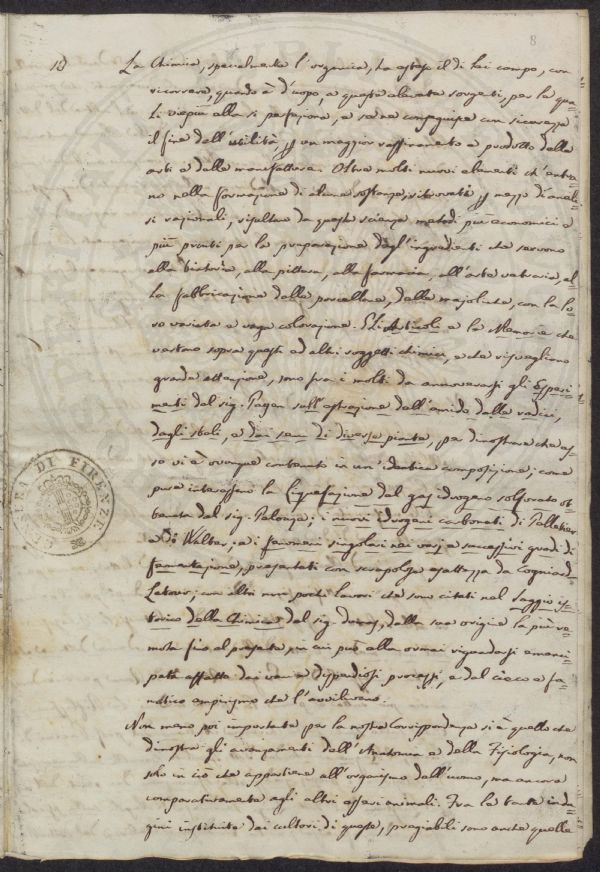 8
La Chimica, specialmente l'organica, ha esteso il di lei campo, con
ricorrere, quando è d'uopo, a queste almeate sorgenti, per la qua=
le viepiù alla si perfeziona, e se ne conseguisce con sicurezza
il fine dell'utilità, pp un maggior raffinamento e prodotto delle
arti e delle manifatture. Oltre molti nuovi elementi ch'entra=
no nella formazione di alcune sostanze, ritrovati pp mezzo di anali=
si razionali, risultano da queste scienze metodi più economici e
più pronti per la preparazione degl'ingredienti che servono
alla tintoria, alla pittura, alla farmacia, all'arte vetraria, al=
la fabbricazione delle porcellane, delle majoliche, con la lo=
ro varietà e vaga colorazione. Gli Articoli e le Memorie che
versano sopra questi ed altri soggetti chimici, e che risvegliano
grande attenzione, sono fra i molti da annoverarsi gli Esperi=
menti del sig. Payen sull'estrazione dell'amido dalle radici,
dagli steli, e dai semi di diverse piante, per dimostrare che es=
so vi è ovunque contenuto in un'identica composizione; come
pure interessano la Liquefazione del gaz idrogeno solforato ot=
tenuta dal sig. Pelouze; i nuovi idrogeni carbonati di Pelletier
e di Walter; e i fenomeni singolari nei varj e successivi gradi di
fermentazione, presentati con scrupolosa esattezza da Cogniard=
Latour; con altri non pochi lavori che sono citati nel Saggio is=
torico della Chimica del sig. Dumas, dalla sua origine la più re=
mota fino al presente, in cui può ella ormai riguardarsi emanci=
pata affatto dai vani e dispendiosi processi, e dal cieco e fa=
natico empirismo che l'avvilivano.
Non meno poi importante per la nostra Corrispondenza si è quello che
dimostra gli avanzamenti dell'Anatomia e della Fisiologia, non
solo in ciò che appartiene all'organismo dell'uomo, ma ancora
comparativamente agli altri esseri animali. Fra le tante inda=
gini instituite dai cultori di queste, pregiabili sono anche quelle
CENSURA DI FIRENZE